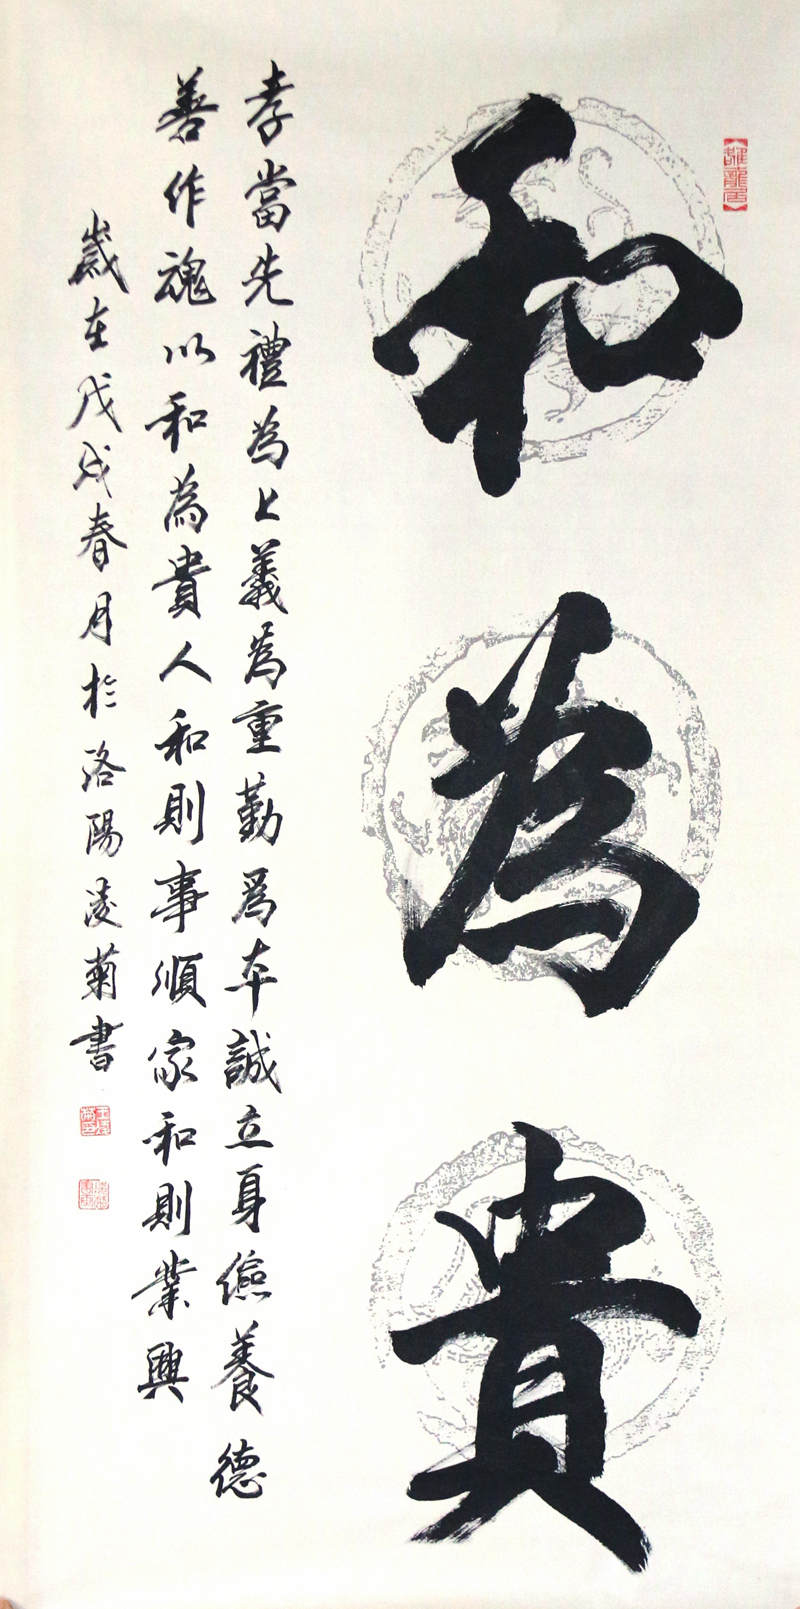 和為貴
孝當先禮為上義為重勤為本誠立身儉養德
善作魂以和為貴人和則事順家和則業興
歲在戊戌春月於洛陽凌菊書